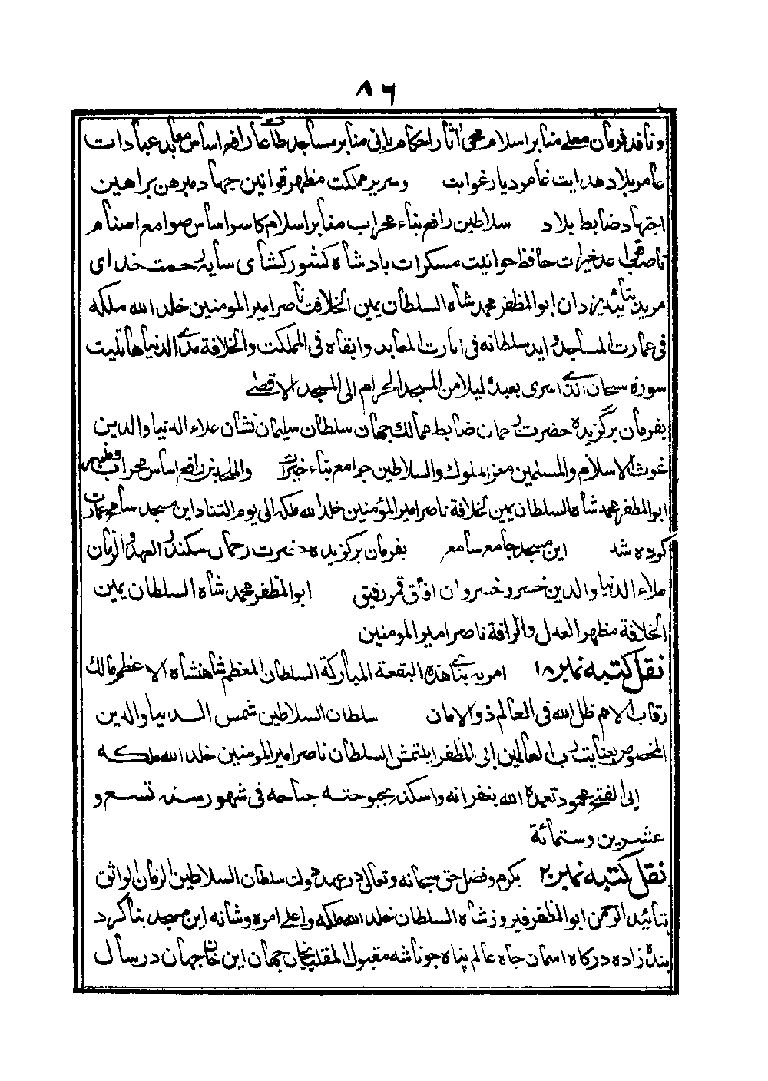 ٨٦
و نافذ فرمان معلے منابر اسلام محی اٰثار احکام بانی منابر مساجد طاعات رافع اساس معابد عبادات
عامر بلاد هدایت غامر دیار غوایت و سریر مملکت مظهر قوانین جهاد مبرهن براهین
اجتهاد ضابط بلاد سلاطین رافع بناء محراب منابر اسلام کاسر اساس صوامع اصنام
ناصب خیرات حافظ حوانیت مسکرات بادشاه کشورکشای سایه رحمت خدای
مرید بتائید یزدان ابوالمظفر محمد شاه السلطان یمین الخلافت ناصر امیر المومنین خلد الله ملکه
فی عمارت المساجد و اید سلطانه فی انارت المعابد و ابقاه فی المملکت والخلافة مدے الدنیا ما تلیت
سورة سبحان الذے اسری بعبده لیلا من المسجد الحرام الی المسجد الاقصٰے
بفرمان برگزیده حضرت رحمان ضابط ممالک جهان سلطان سلیمان نشان علاء الدنیا والدین
غوث الاسلام والمسلمین معز الملوک والسلاطین بناء خیرات رافع اساس محراب
ابوالمظفر محمد شاه السلطان یمین الخلافة ناصر امیر المؤمنین خلد الله ملکه الی یوم التناد این مسجد عمارت
کرده شد این مسجد جامع سامع بفرمان برگزیده حضرت رحمان سکندر العهد والزمان
علاء الدنیا والدین خسرو خسروان افاق قمر رفیق ابوالمظفر محمد شاه السلطان یمین
الخلافة مظهر العدل والرافة ناصر امیر المومنین
نقل کتبه نمبر ۱۸ امر به بناے هذه البقعة المبارکة السلطان المعظم شاهنشاه الاعظم مالک
رقاب الامم ظل الله فی العالم ذوالامان سلطان السلاطین شمس الدنیا والدین
المخصوص بعنایت رب العالمین ابی المظفر ایلتمش السلطان ناصر امیر المومنین خلد الله ملکه
ابی الفتح محمود تغمده الله بغفرانه و اسکنه بحبوحة جنانه فی شهور سنه تسع و
عشرین و ستمائة
نقل کتبه نمبر ۲۰ بکرم و فضل حق سبحانه و تعالی در عهد دولت سلطان السلاطین الزمان الواثق
بتائید الرحمن ابوالمظفر فیروز شاه السلطان خلد الله ملکه و اعلی امره و شانه این مسجد بنا کرد
بنده زاده درگاه اسمان جاه عالم پناه جونا شه مقبول الملقب خان جهان ابن خان جهان در سال